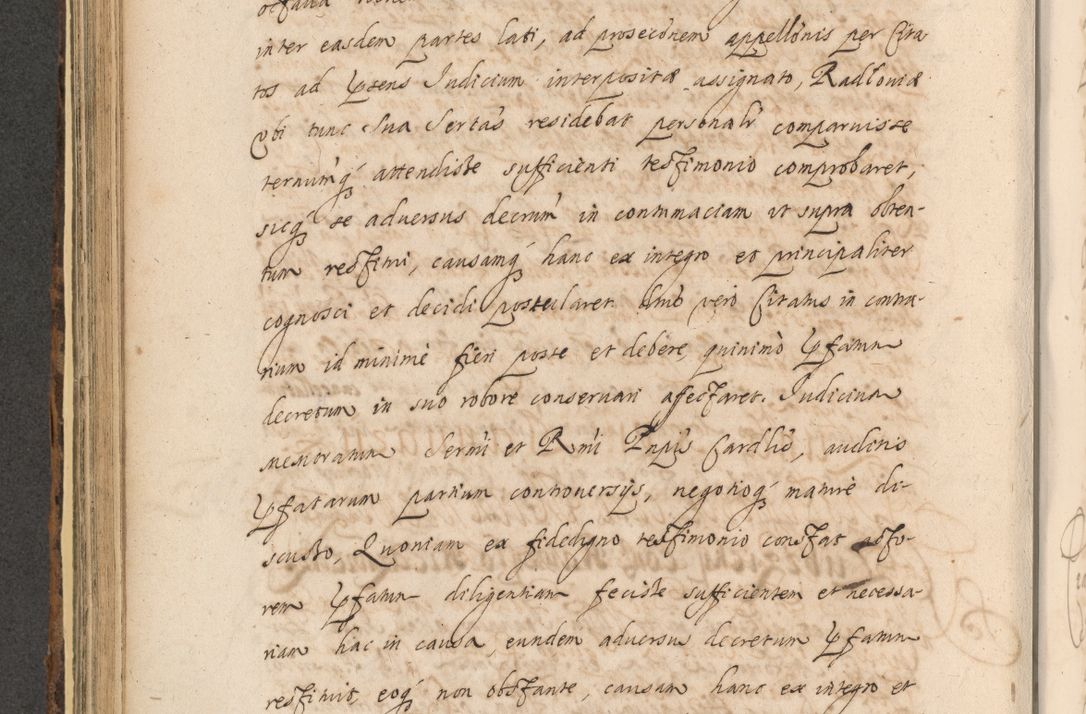 inter easdem partes lati, ad prosecōnem appellōnis per Cita
tos ad Ꝓsens Judicium interpositæ assignato, Radlouiæ
vbi tunc Sua Sertas residebat personalr̄ comparuisse
terminūq́ attendisse sufficienti testimonio comprobaret,
sicq́ se aduersus decrum̄ in contumaciam ut supra obten-
tum restitui, causamq́ hanc ex integro et principaliter
cognosci et decidi postularet. Imō verò Citatus in contra-
rium id minimè fieri posse et debere, quinimò Ꝓfatum
decretum in suo robore conseruari affectaret. Judicium
memoratum Sermi et Rmi Dnpis Cardlis, auditis
Ꝓfatarum partium controuersijs, negotioq́ maturè di-
scusso, Quoniam ex fidedigno testimonio constat Acto-
rem Ꝓfatum diligentiam fecisse sufficientem et necessa-
riam hac in causa, eundem aduersu decretum Ꝓfatum
restituit, eoq́ non obstante, causam hanc ex integro et